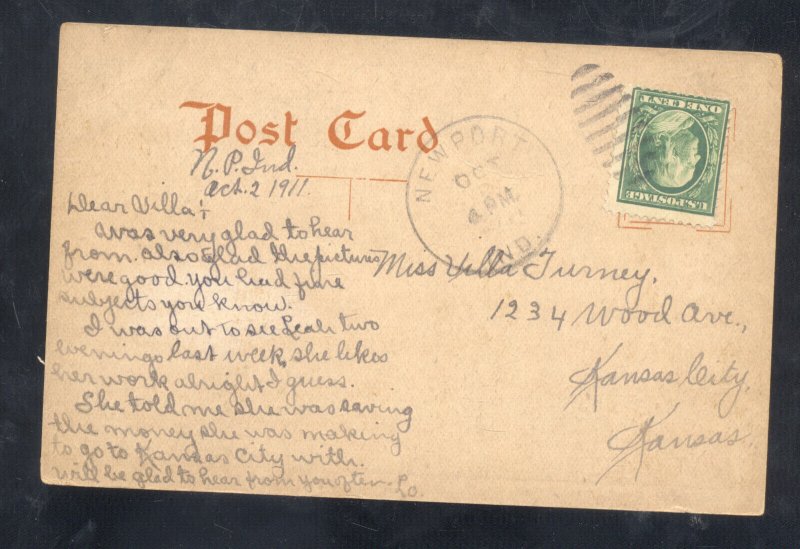 Post Card
N.P. Ind.
Oct. 2 1911.
NEWPORT
OCT
4 PM
IND.
ONE CENT
U.S. POSTAGE
Dear Villa:
Was very glad to hear
from. also glad the pictures
were good. you had fine
subjects you know.
I was out to see Leah two
evenings last week, she likes
her work alright I guess.
She told me she was saving
the money she was making
to go to Kansas City with.
will be glad to hear from you often. Lo.
Miss Villa Turney,
1234 Wood Ave.,
Kansas City,
Kansas.